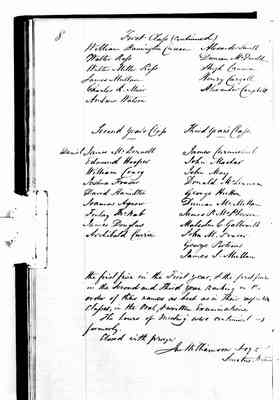 8 First Class (Continued)
William Bannington Curran Alexander Smith
Walter Ross Duncan McDonald
Walter Miller Ross Hugh Cameron
James Mullan Henry Cargill
Charles R. Muir Alexander Campbell
Andrew Watson
Second Year's Class Third Year's Class
Daniel James McDonnell James Carmichael
Edmund Hooper John Machar
William Coney John May
Joshua Fraser Donald McLennan
David Hamilton George Hutton
Thomas Agnew Duncan McMillan
Finlay McNab James A. McPherson
James Douglas Malcolm C. Galbraith
Archibald Currie John M. Fraser
George Porteous
James S. Mullan
the first five in the First Year, & the first five
in the Second and Third Year ranking in the
order of their names as head in their respective
Classes, in the Oral & written Examinations
The hours of Meeting were continued as
formerly
Closed with prayer
J. Williamson